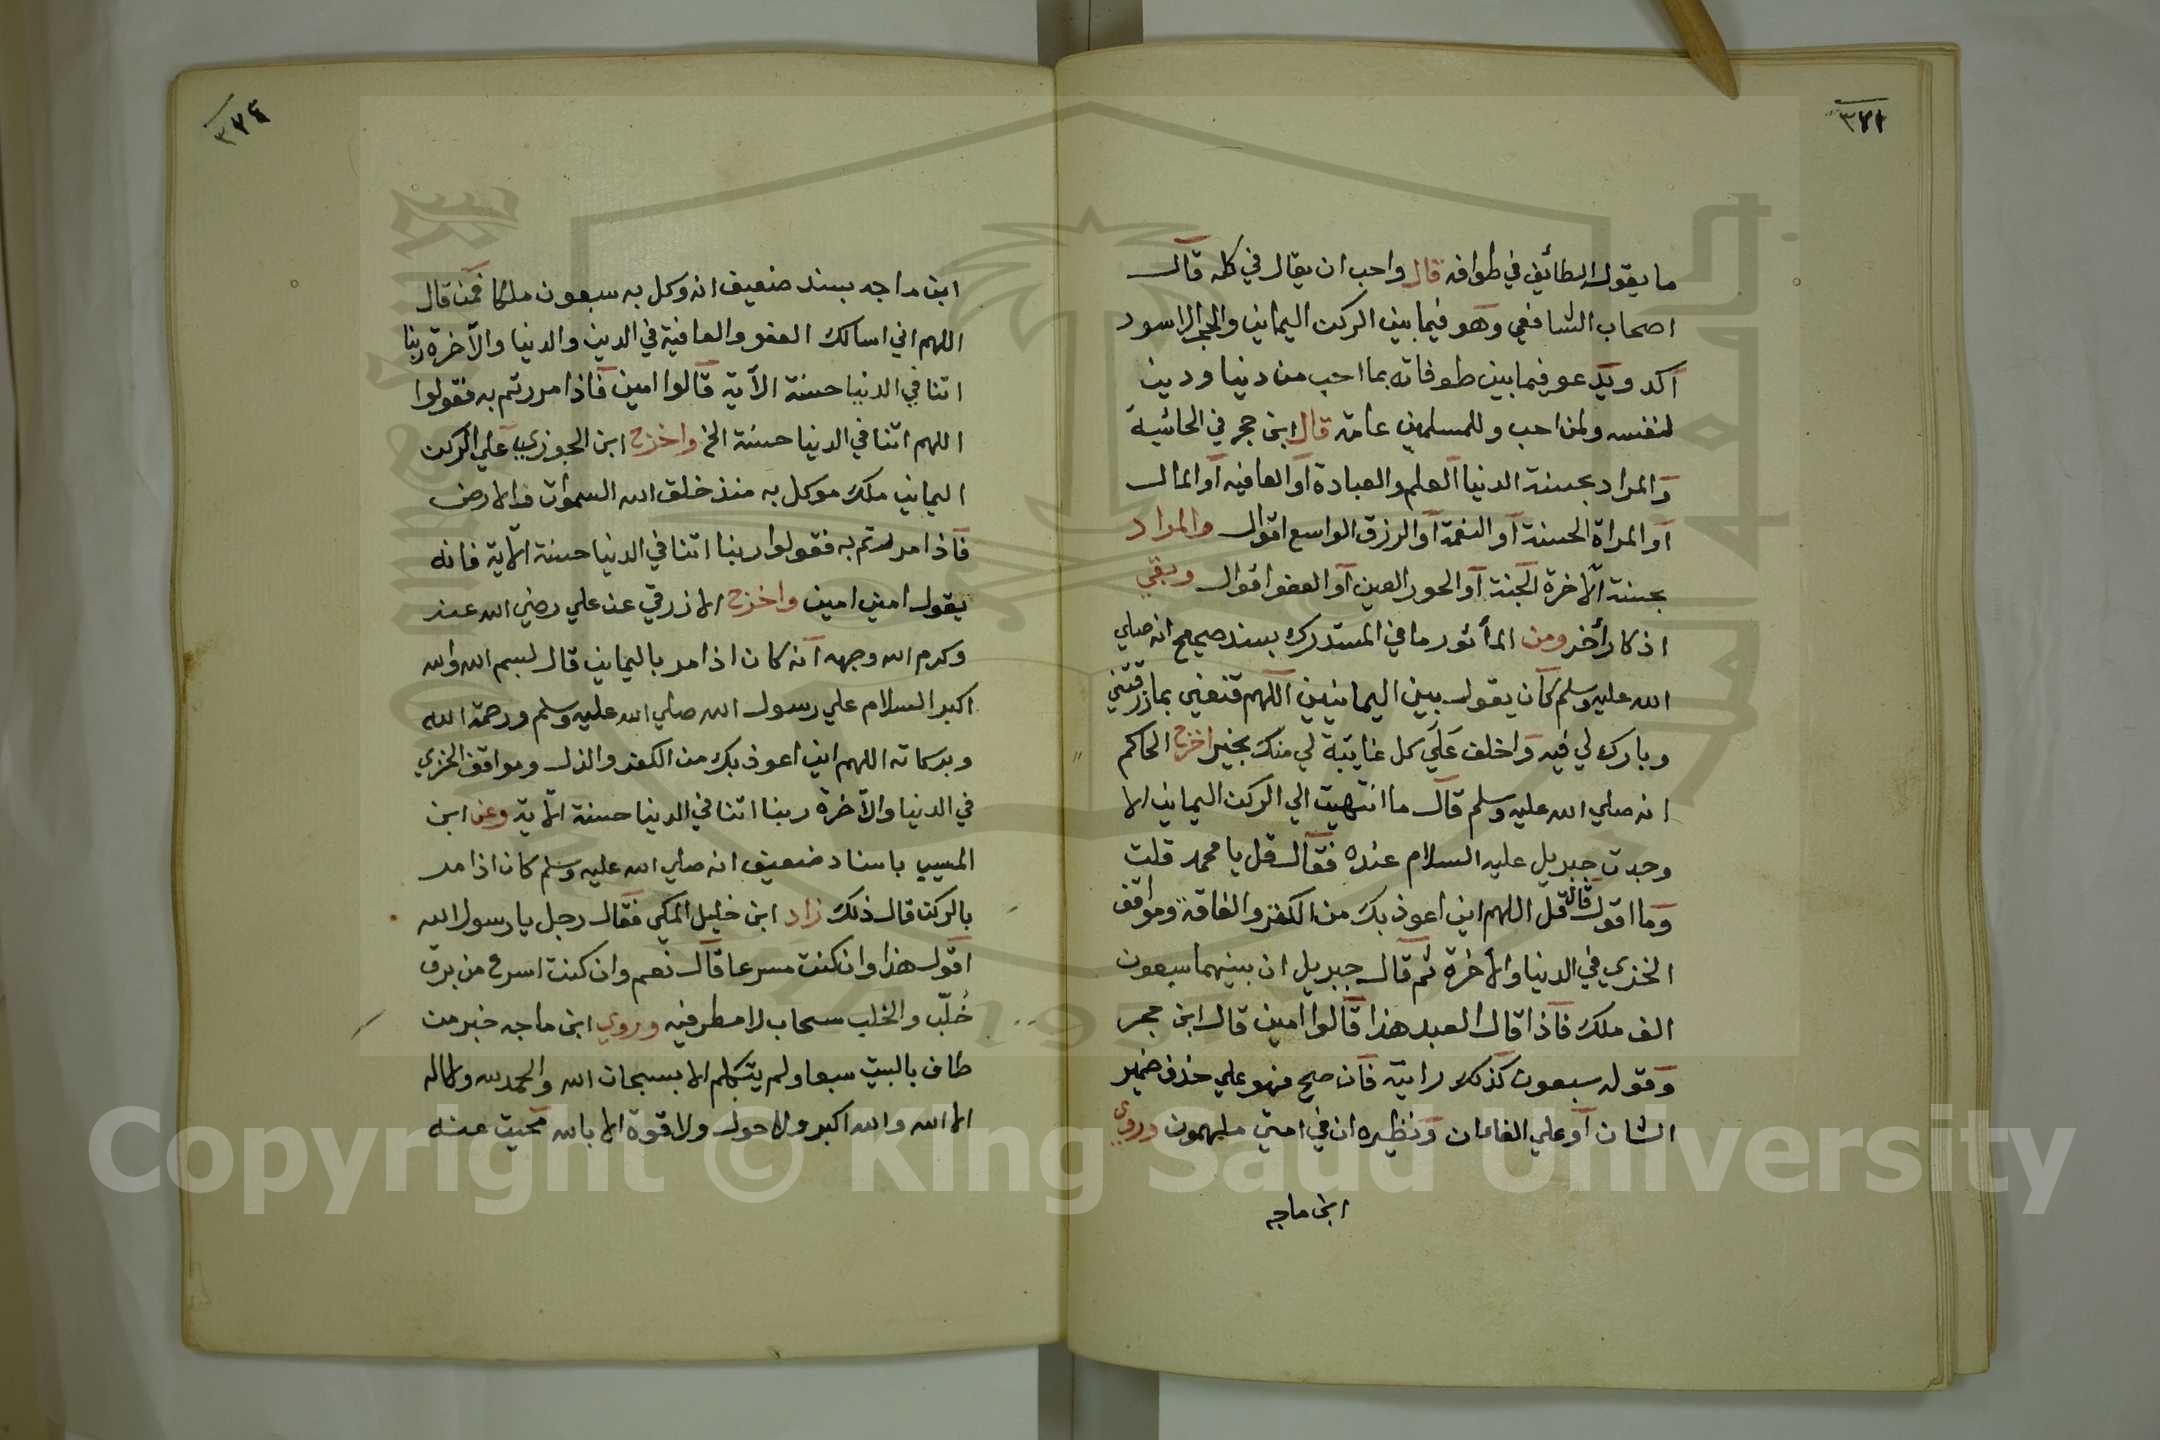 ٣٧١
ما يقوله الطائف في طوافه قال واحب ان يقال في كله قال
اصحاب الشافعي وهو فيما بين الركن اليماني والحجر الاسود
آكد ويدعو فيما بين طوفاته بما احب من دنيا ودين
لنفسه ولمن احب وللمسلمين عامة قال ابن حجر في الحاشية
والمراد بحسنة الدنيا العلم والعبادة او العافيه او المال
او المراة الحسنة او النعمة او الرزق الواسع اقوال والمراد
بحسنة الآخرة الجنة او الحور العين او العفو اقوال وبقي
اذكار أخر ومن المأثور ما في المستدرك بسند صحيح انه صلي
الله عليه وسلم كان يقول بين اليمانيين اللهم قنعني بما رزقتني
وبارك لي فيه واخلف علي كل غايبة لي منك بخير اخرج الحاكم
انه صلي الله عليه وسلم قال ما انتهيت الي الركن اليماني الا
وجدت جبريل عليه السلام عنده فقال قل يا محمد قلت
وما اقول قال قل اللهم اني اعوذ بك من الكفر والفاقة ومواقف
الخزي في الدنيا والآخرة ثم قال جبريل ان بينهما سبعون
الف ملك فاذا قال العبد هذا قالوا امين قال ابن حجر
وقوله سبعون كذلك رايته فان صح فهو علي حذف ضمير
الشان او علي الغا ان ونظيره ان في امتي ملهمون وروي
ابن ماجه
٣٧٤
ابن ماجه بسند ضعيف انه وكل به سبعون ملكا فمن قال
اللهم اني اسالك العفو والعافية في الدين والدنيا والآخرة ربنا
اتنا في الدنيا حسنة الآية قالوا امين فاذا مررتم به فقولوا
اللهم اتنا في الدنيا حسنة الخ واخرج ابن الجوزي علي الركن
اليماني ملك موكل به منذ خلق الله السموات والارض
فاذا مررتم به فقولوا ربنا اتنا في الدنيا حسنة الآية فانه
يقول امين امين واخرج الازرقي عن علي رضي الله عنه
وكرم الله وجهه انه كان اذا مر باليماني قال بسم الله والله
اكبر السلام علي رسول الله صلي الله عليه وسلم ورحمة الله
وبركاته اللهم اني اعوذ بك من الكفر والذل ومواقف الخزي
في الدنيا والآخرة ربنا اتنا في الدنيا حسنة الآية وعن ابن
المسيب باسناد ضعيف انه صلي الله عليه وسلم كان اذا مر
بالركن قال ذلك زاد ابن خليل المكي فقال رجل يا رسول الله
اقول هذا وان كنت مسرعا قال نعم وان كنت اسرع من برق
خُلّب والخلب سحاب لا مطر فيه وروي ابن ماجه خبر من
طاف بالبيت سبعا ولم يتكلم الا بسبحان الله والحمد لله ولا اله
الا الله والله اكبر ولا حول ولا قوة الا بالله محيت عنه
Copyright © King Saud University